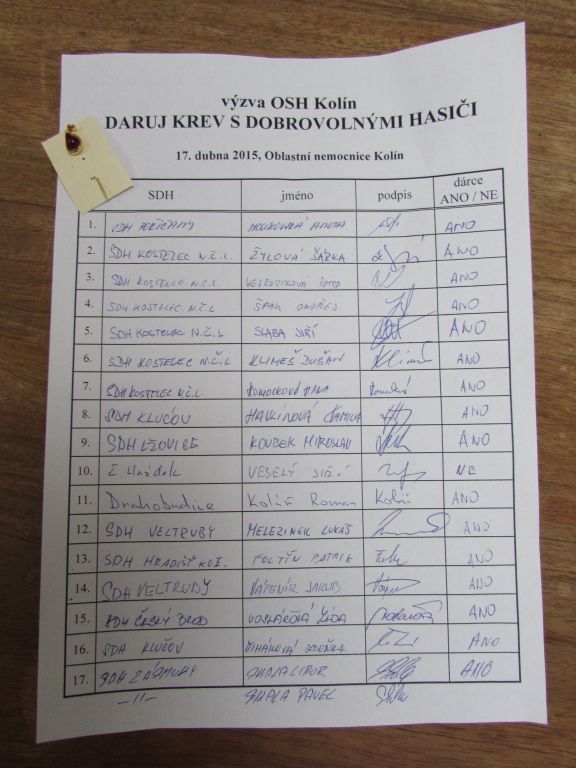 výzva OSH Kolín
DARUJ KREV S DOBROVOLNÝMI HASIČI
17. dubna 2015, Oblastní nemocnice Kolín
SDH jméno podpis dárce ANO / NE
1. SDH ANO
2. SDH KOSTELEC N.Č.L. ŽYLOVÁ ŠÁRKA ANO
3. SDH KOSTELEC N.Č.L. ANO
4. SDH KOSTELEC N.Č.L ŠPAK ONDŘEJ ANO
5. SDH KOSTELEC N.Č.L SLABA JIŘÍ ANO
6. SDH KOSTELEC N.Č.L KLIMEŠ DUŠAN Klimeš ANO
7. SDH KOSTELEC N.Č.L. ANO
8. SDH KLUČOV HAVLÍNOVÁ KAMILA ANO
9. SDH LŽOVICE KOUBEK MIROSLAV ANO
10. VESELÝ JIŘÍ NE
11. Drahobudice Kolář Roman Kolář ANO
12. SDH VELTRUBY MELEZINEK LUKÁŠ ANO
13. SDH HRADIŠŤKO I. FOLTÝN PATRIK ANO
14. SDH VELTRUBY JAKUB ANO
15. SDH ČESKÝ BROD ANO
16. SDH KLUČOV ZDEŇKA ANO
17. SDH ZÁSMUKY LIBOR ANO
-11- PAVEL